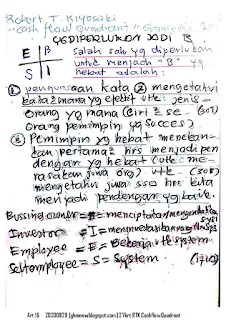 Robert T. Kiyosaki
"Cash flow Quadrant"
YG DIPERLUKAN JADI B
E B
S I
salah satu yg diperlukan
untuk menjadi "B" yg
hebat adalah:
① penguasaan kata ② mengetahui
kata² mana yg efektif utk jenis²
orang yg mana (ciri²
orang pemimpin yg succes)
② Pemimpin yg hebat
pertama² hrs menjadi pen
dengar yg hebat (utk me
rasakan jiwa org) (308)
mengetahui jiwa
menjadi pendengar yg baik.
Bussines owner = B = menciptakan
Investor = I =
Employee = E = Bekerja utk system
Self employee = S = System
Art 16 20200829 [ghemow.blogspot.com] 27Art RTK CashflowQuadrant